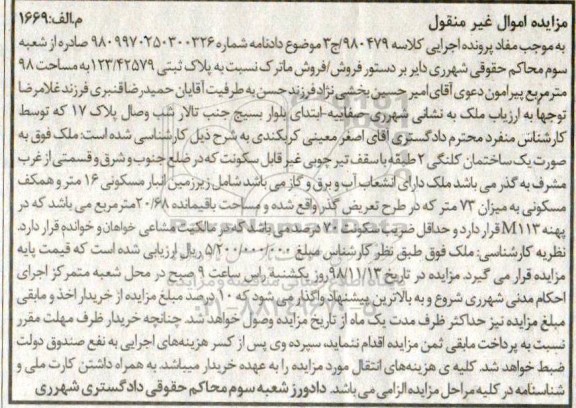 مزایده اموال غیر منقول م.الف:۱۶۶۹
به موجب مفاد پرونده اجرایی کلاسه ۹۸۰۴۷۹/ج۳ موضوع دادنامه شماره ۹۸۰۹۹۷۰۲۵۰۳۰۰۳۲۶ صادره از شعبه
سوم محاکم حقوقی شهرری دایر بر دستور فروش/فروش ماترک نسبت به پلاک ثبتی ۱۲۳/۴۲۵۷۹ به مساحت ۹۸
مترمربع پیرامون دعوی آقای امیر حسین بخشی نژاد فرزند حسن به طرفیت آقایان حمیدرضا قنبری فرزند غلامرضا
توجها به ارزیاب ملک به نشانی شهرری-صفاییه-ابتدای بلوار بسیج جنب تالار شب وصال پلاک ۱۷ که توسط
کارشناس منفرد محترم دادگستری آقای اصغر معینی کربکندی به شرح ذیل کارشناسی شده است: ملک فوق به
صورت یک ساختمان کلنگی ۲ طبقه با سقف تیر چوبی غیر قابل سکونت که در ضلع جنوب و شرق و قسمتی از غرب
مشرف به گذر می باشد ملک دارای انشعاب آب و برق و گاز می باشد شامل زیرزمین انبار مسکونی ۱۶ متر و همکف
مسکونی به میزان ۷۳ متر که در طرح تعریض گذر واقع شده و مساحت باقیمانده ۲۰/۶۸ مترمربع می باشد که در
پهنه M۱۱۳ قرار دارد و حداقل ضریب سکونت ۷۰ درصد می باشد که در مالکیت مشاعی خواهان و خوانده قرار دارد.
نظریه کارشناسی: ملک فوق طبق نظر کارشناس مبلغ ۵/۲۰۰/۰۰۰/۰۰۰ ریال ارزیابی شده است که قیمت پایه
مزایده قرار می گیرد. مزایده در تاریخ ۹۸/۱۱/۱۳ روز یکشنبه راس ساعت ۹ صبح در محل شعبه متمرکز اجرای
احکام مدنی شهرری شروع و به بالاترین پیشنهاد واگذار می شود که ۱۰ درصد مبلغ مزایده از خریدار اخذ و مابقی
مبلغ مزایده نیز حداکثر ظرف مدت یک ماه از تاریخ مزایده وصول خواهد شد. چنانچه خریدار ظرف مهلت مقرر
نسبت به پرداخت مابقی ثمن مزایده اقدام ننماید، سپرده وی پس از کسر هزینه‌های اجرایی به نفع صندوق دولت
ضبط خواهد شد. کلیه ی هزینه‌های انتقال مورد مزایده را به عهده خریدار میباشد. به همراه داشتن کارت ملی و
شناسنامه در کلیه مراحل مزایده الزامی می باشد. دادورز شعبه سوم محاکم حقوقی دادگستری شهرری